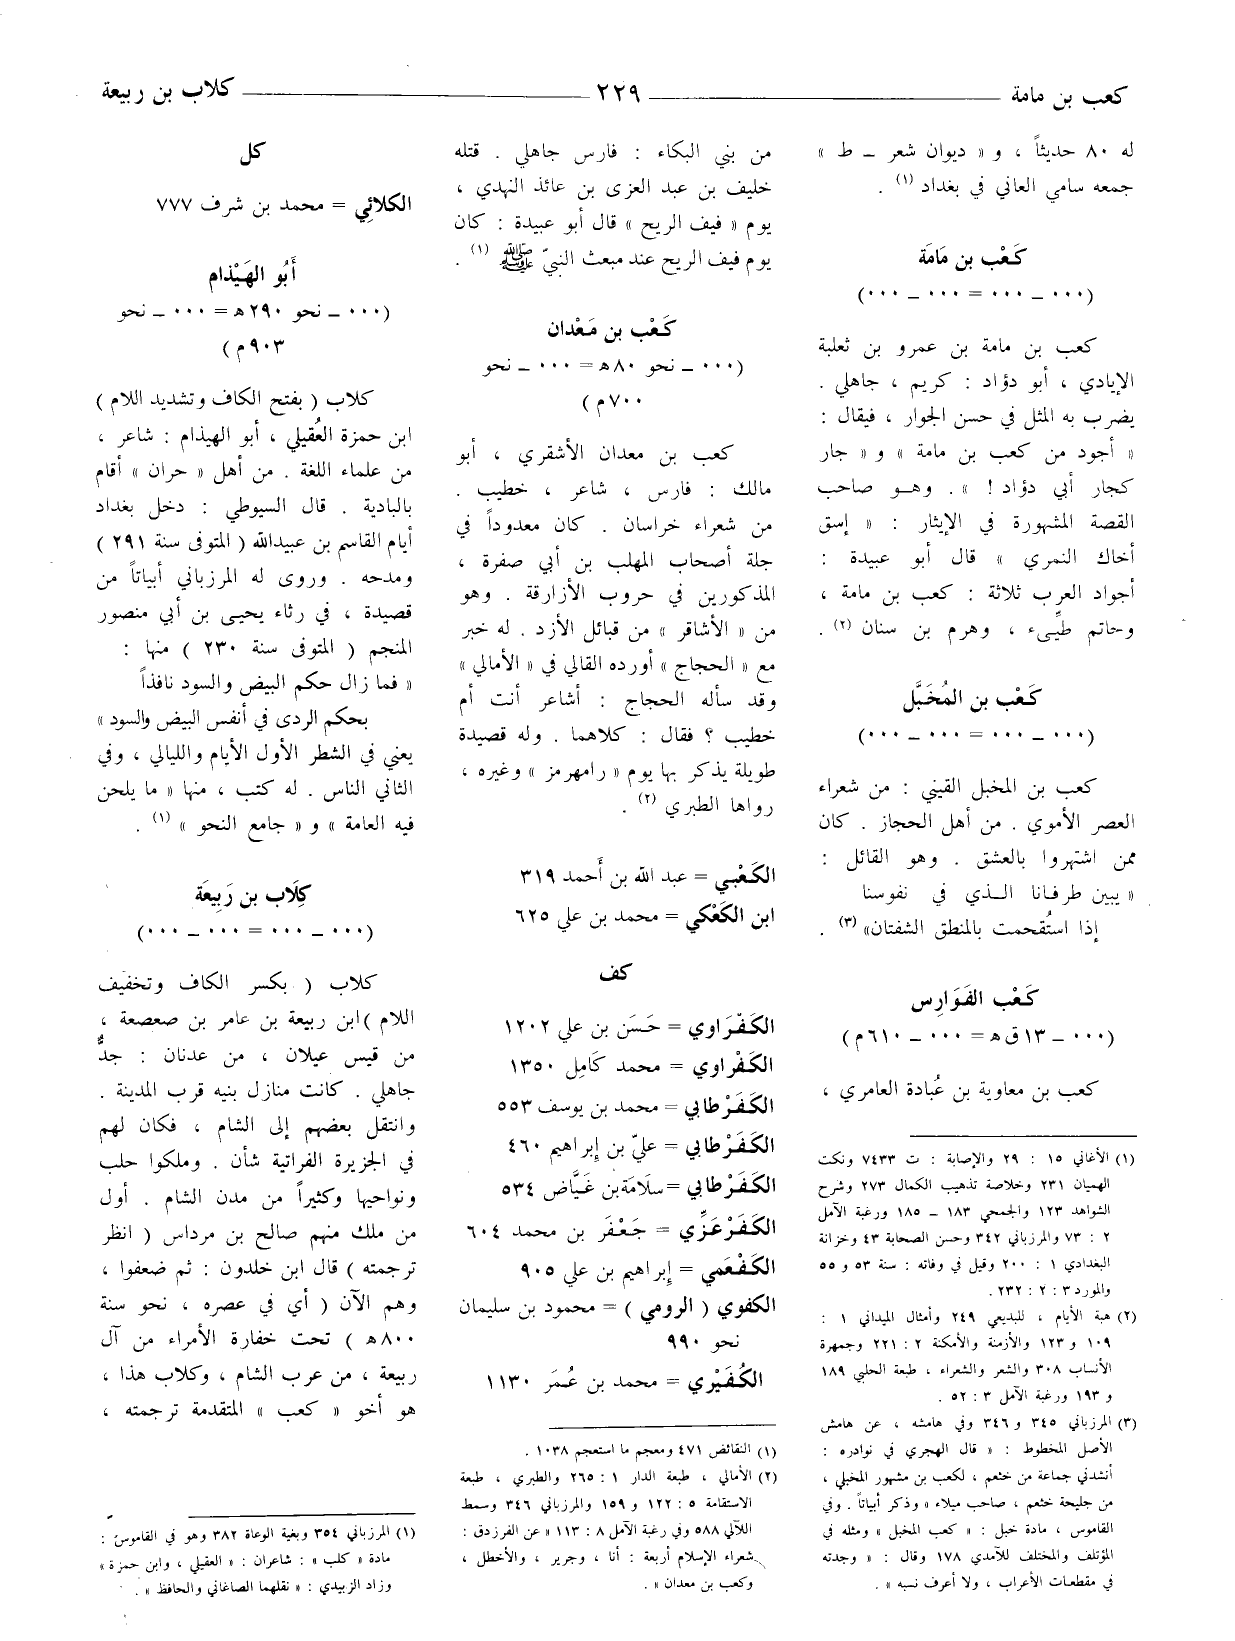 كعب بن مامة ٢٢٩ كلاب بن ربيعة
له ٨٠ حديثاً ، و « ديوان شعر ــ ط »
جمعه سامي العاني في بغداد (١) .
كَعْب بن مَامَة
(٠٠٠ ــ ٠٠٠ = ٠٠٠ ــ ٠٠٠)
كعب بن مامة بن عمرو بن ثعلبة
الإيادي ، أبو دؤاد : كريم ، جاهلي .
يضرب به المثل في حسن الجوار ، فيقال :
« أجود من كعب بن مامة » و « جار
كجار أبي دؤاد ! » . وهــو صاحب
القصة المشهورة في الإيثار : « إسق
أخاك النمري » قال أبو عبيدة :
أجواد العرب ثلاثة : كعب بن مامة ،
وحاتم طيِّىء ، وهرم بن سنان (٢) .
كَعْب بن المُخَبَّل
(٠٠٠ ــ ٠٠٠ = ٠٠٠ ــ ٠٠٠)
كعب بن المخبل القيني : من شعراء
العصر الأموي . من أهل الحجاز . كان
ممن اشتهروا بالعشق . وهو القائل :
« يبين طرفانا الــذي في نفوسنا
إذا استُقحمت بالمنطق الشفتان» (٣) .
كَعْب الفَوَارِس
(٠٠٠ ــ ١٣ ق ه = ٠٠٠ ــ ٦١٠ م)
كعب بن معاوية بن عُبادة العامري ،
(١) الأغاني ١٥ : ٢٩ والإصابة : ت ٧٤٣٣ ونكت
الهميان ٢٣١ وخلاصة تذهيب الكمال ٢٧٣ وشرح
الشواهد ١٢٣ والجمحي ١٨٣ ــ ١٨٥ ورغبة الآمل
٢ : ٧٣ والمرزباني ٣٤٢ وحسن الصحابة ٤٣ وخزانة
البغدادي ١ : ٢٠٠ وقيل في وفاته : سنة ٥٣ و ٥٥
والمورد ٣ : ٢ : ٢٣٢.
(٢) هبة الأيام ، للبديعي ٢٤٩ وأمثال الميداني ١ :
١٠٩ و ١٢٣ والأزمنة والأمكنة ٢ : ٢٢١ وجمهرة
الأنساب ٣٠٨ والشعر والشعراء ، طبعة الحلبي ١٨٩
و ١٩٣ ورغبة الآمل ٣ : ٥٢ .
(٣) المرزباني ٣٤٥ و ٣٤٦ وفي هامشه ، عن هامش
الأصل المخطوط : « قال الهجري في نوادره :
أنشدني جماعة من خثعم ، لكعب بن مشهور المخبلي ،
من جليحة خثعم ، صاحب ميلاء » وذكر أبياتاً . وفي
القاموس ، مادة خبل : « كعب المخبل » ومثله في
المؤتلف والمختلف للآمدي ١٧٨ وقال : « وجدته
في مقطعات الأعراب ، ولا أعرف نسبه » .
من بني البكاء : فارس جاهلي . قتله
خليف بن عبد العزى بن عائذ النهدي ،
يوم « فيف الريح » قال أبو عبيدة : كان
يوم فيف الريح عند مبعث النبيّ ﷺ (١) .
كَعْب بن مَعْدان
(٠٠٠ ــ نحو ٨٠ ه = ٠٠٠ ــ نحو
٧٠٠ م)
كعب بن معدان الأشقري ، أبو
مالك : فارس ، شاعر ، خطيب .
من شعراء خراسان . كان معدوداً في
جلة أصحاب المهلب بن أبي صفرة ،
المذكورين في حروب الأزارقة . وهو
من « الأشاقر » من قبائل الأزد . له خبر
مع « الحجاج » أورده القالي في « الأمالي »
وقد سأله الحجاج : أشاعر أنت أم
خطيب ؟ فقال : كلاهما . وله قصيدة
طويلة يذكر بها يوم « رامهرمز » وغيره ،
رواها الطبري (٢) .
الكَعْبي = عبد الله بن أَحمد ٣١٩
ابن الكَعْكي = محمد بن علي ٦٢٥
كف
الكَفْرَاوي = حَسَن بن علي ١٢٠٢
الكَفْراوي = محمد كَامِل ١٣٥٠
الكَفَرْطابي = محمد بن يوسف ٥٥٣
الكَفَرْطابي = عليّ بن إِبراهيم ٤٦٠
الكَفَرْطابي = سلَامَة بن غَيَّاض ٥٣٤
الكَفَرْعَزِّي = جَعْفَر بن محمد ٦٠٤
الكَفْعَمي = إِبراهيم بن علي ٩٠٥
الكفوي ( الرومي ) = محمود بن سليمان
نحو ٩٩٠
الكُفَيْري = محمد بن عُمَر ١١٣٠
(١) النقائض ٤٧١ ومعجم ما استعجم ١٠٣٨ .
(٢) الأمالي ، طبعة الدار ١ : ٢٦٥ والطبري ، طبعة
الاستقامة ٥ : ١٢٢ و ١٥٩ والمرزباني ٣٤٦ وسمط
اللآلي ٥٨٨ وفي رغبة الآمل ٨ : ١١٣ « عن الفرزدق :
شعراء الإسلام أربعة : أنا ، وجرير ، والأخطل ،
وكعب بن معدان » .
كل
الكلائي = محمد بن شرف ٧٧٧
أَبُو الهَيْذام
(٠٠٠ ــ نحو ٢٩٠ ه = ٠٠٠ ــ نحو
٩٠٣ م)
كلاب ( بفتح الكاف وتشديد اللام )
ابن حمزة العُقيلي ، أبو الهيذام : شاعر ،
من علماء اللغة . من أهل « حران » أقام
بالبادية . قال السيوطي : دخل بغداد
أيام القاسم بن عبيدالله ( المتوفى سنة ٢٩١ )
ومدحه . وروى له المرزباني أبياتاً من
قصيدة ، في رثاء يحيى بن أبي منصور
المنجم ( المتوفى سنة ٢٣٠ ) منها :
« فما زال حكم البيض والسود نافذاً
بحكم الردى في أنفس البيض والسود »
يعني في الشطر الأول الأيام والليالي ، وفي
الثاني الناس . له كتب ، منها « ما يلحن
فيه العامة » و « جامع النحو » (١) .
كِلَاب بن رَبِيعَة
(٠٠٠ ــ ٠٠٠ = ٠٠٠ ــ ٠٠٠)
كلاب ( بكسر الكاف وتخفيف
اللام ) ابن ربيعة بن عامر بن صعصعة ،
من قيس عيلان ، من عدنان : جدٌّ
جاهلي . كانت منازل بنيه قرب المدينة .
وانتقل بعضهم إلى الشام ، فكان لهم
في الجزيرة الفراتية شأن . وملكوا حلب
ونواحيها وكثيراً من مدن الشام . أول
من ملك منهم صالح بن مرداس ( انظر
ترجمته ) قال ابن خلدون : ثم ضعفوا ،
وهم الآن ( أي في عصره ، نحو سنة
٨٠٠ ه ) تحت خفارة الأمراء من آل
ربيعة ، من عرب الشام ، وكلاب هذا ،
هو أخو « كعب » المتقدمة ترجمته ،
(١) المرزباني ٣٥٤ وبغية الوعاة ٣٨٢ وهو في القاموس :
مادة « كلب » : شاعران : « العقيلي ، وابن حمزة »
وزاد الزبيدي : « نقلهما الصاغاني والحافظ » .